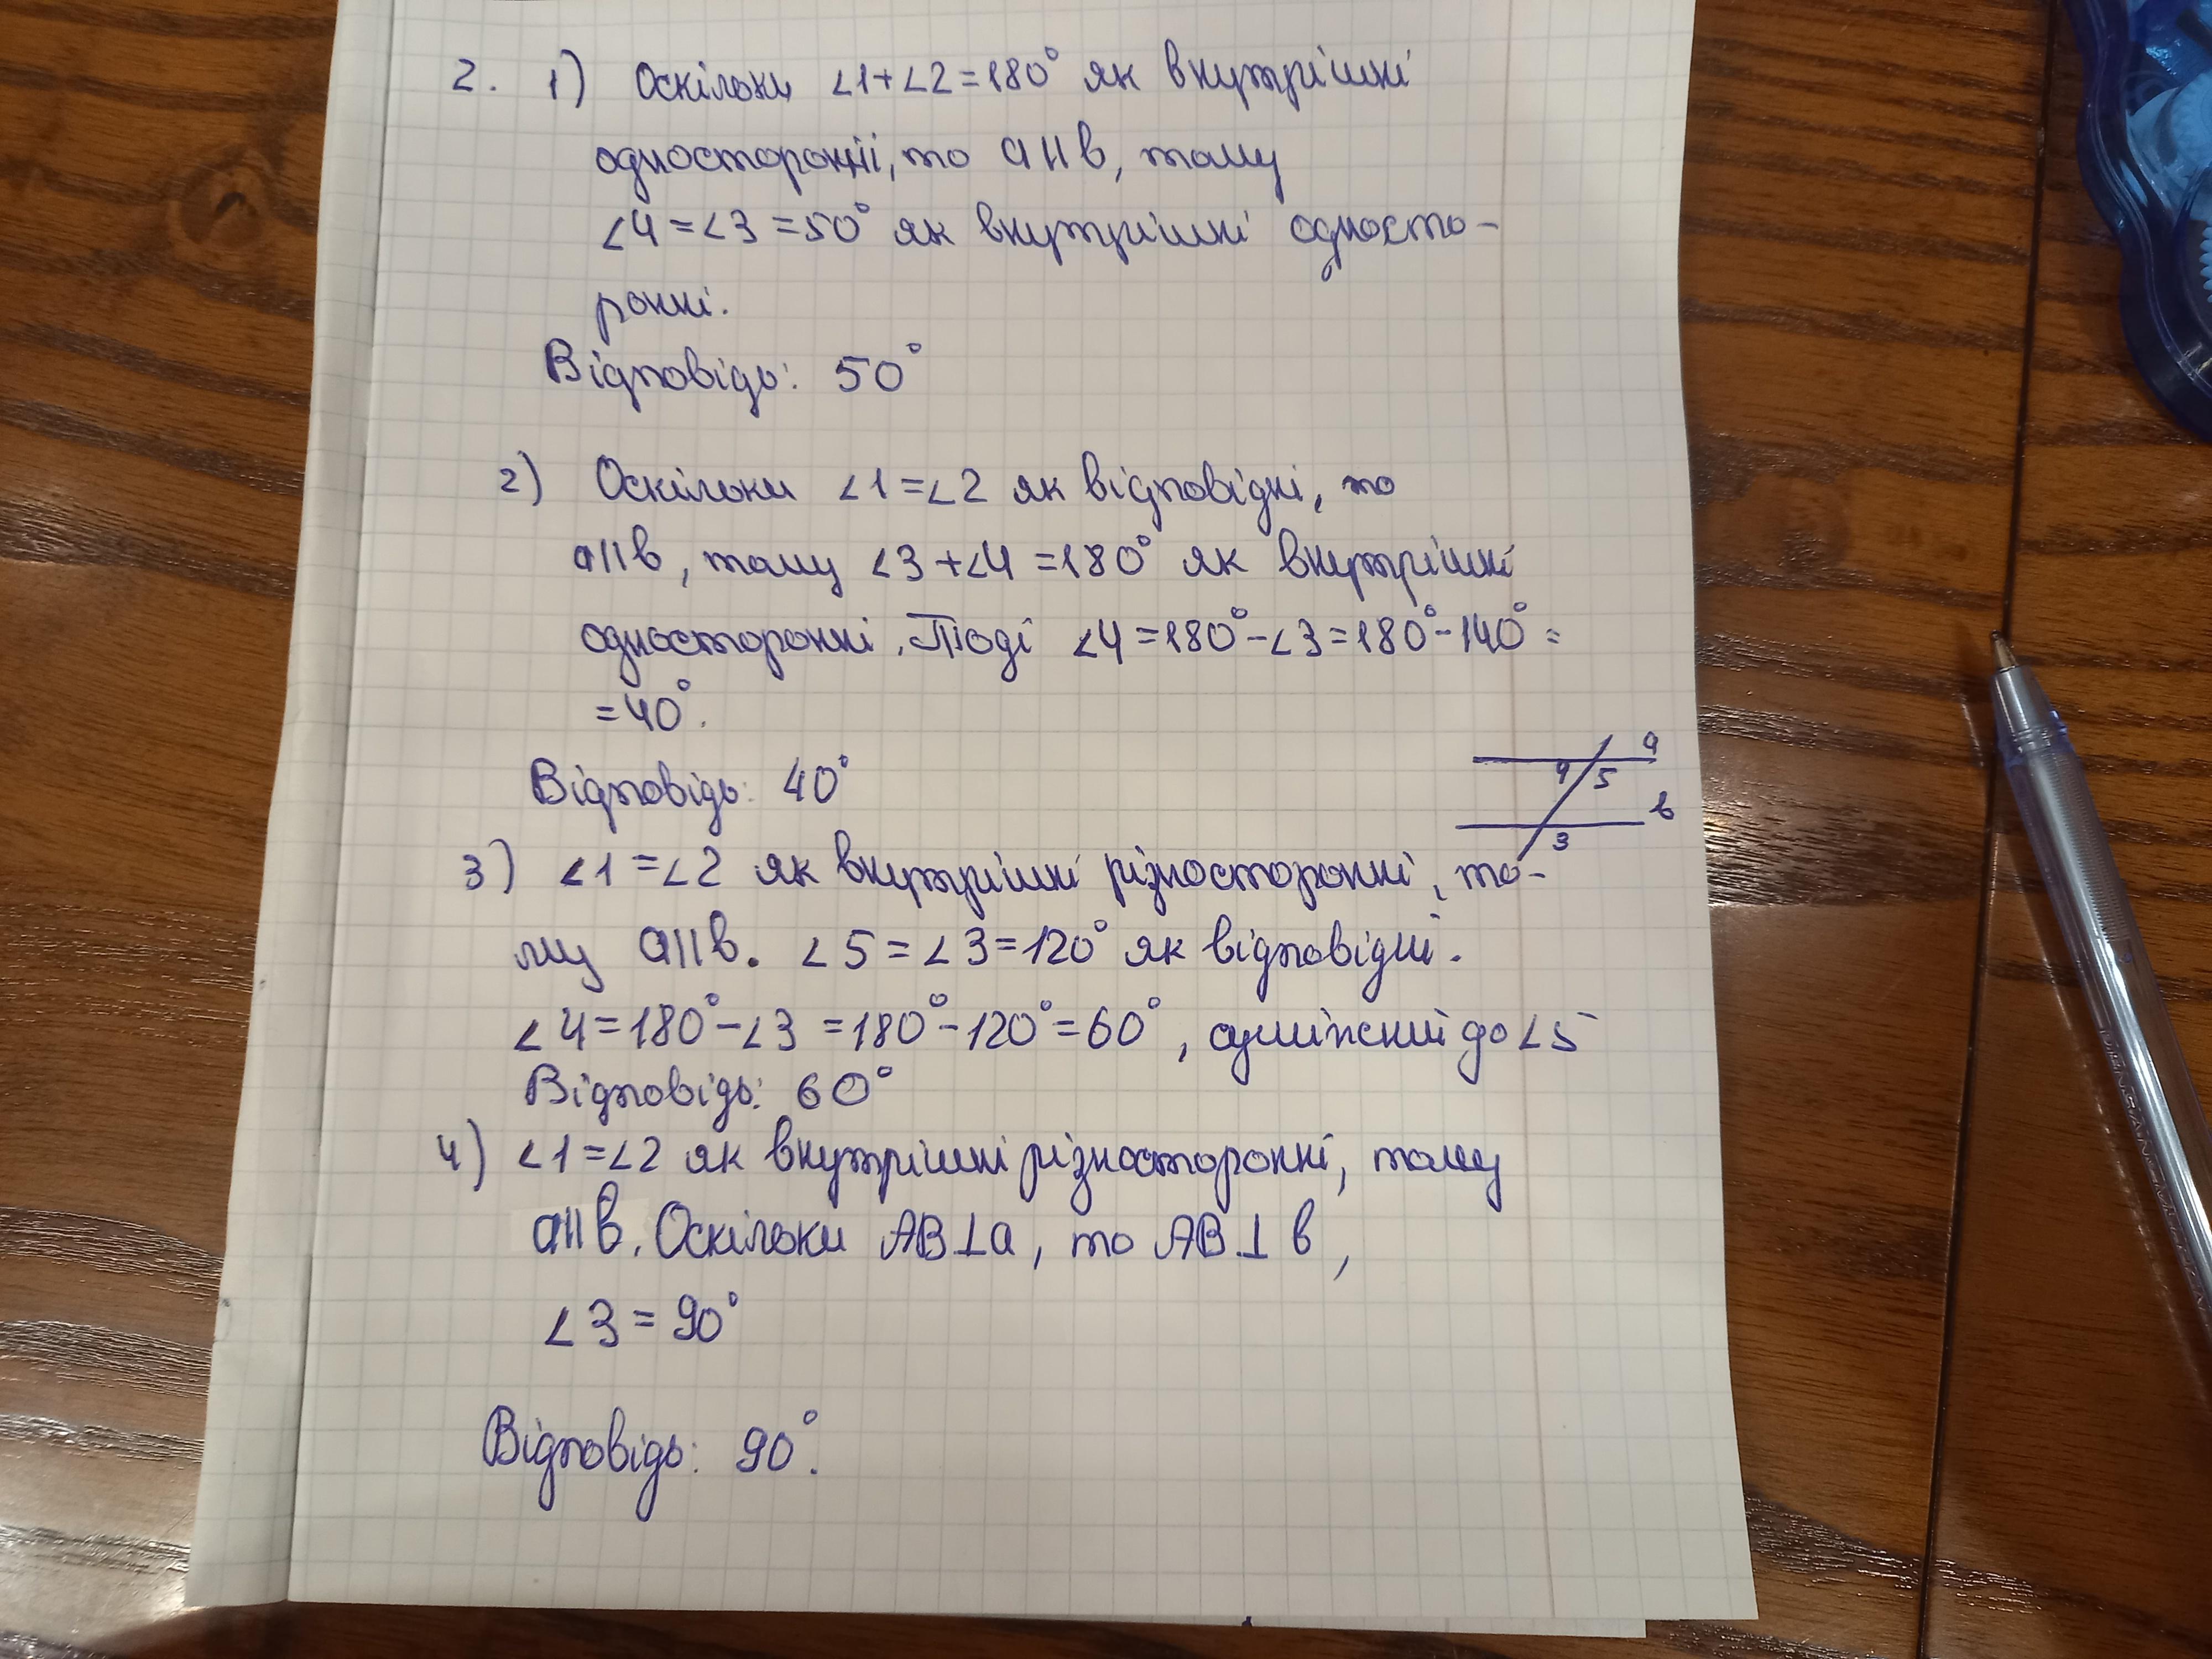 2. 1) Оскільки ∠1+∠2=180° як внутрішні
односторонні, то a||b, тому
∠4=∠3=50° як внутрішні односто-
ронні.
Відповідь: 50°
2) Оскільки ∠1=∠2 як відповідні, то
a||b, тому ∠3+∠4=180° як внутрішні
односторонні. Тоді ∠4=180°-∠3=180°-140°=
=40°.
Відповідь: 40°
a
4 5
b
3
3) ∠1=∠2 як внутрішні різносторонні, то-
му a||b. ∠5=∠3=120° як відповідні.
∠4=180°-∠3=180°-120°=60°, суміжний до ∠5
Відповідь: 60°
4) ∠1=∠2 як внутрішні різносторонні, тому
a||b. Оскільки AB⊥a, то AB⊥b,
∠3=90°
Відповідь: 90°.